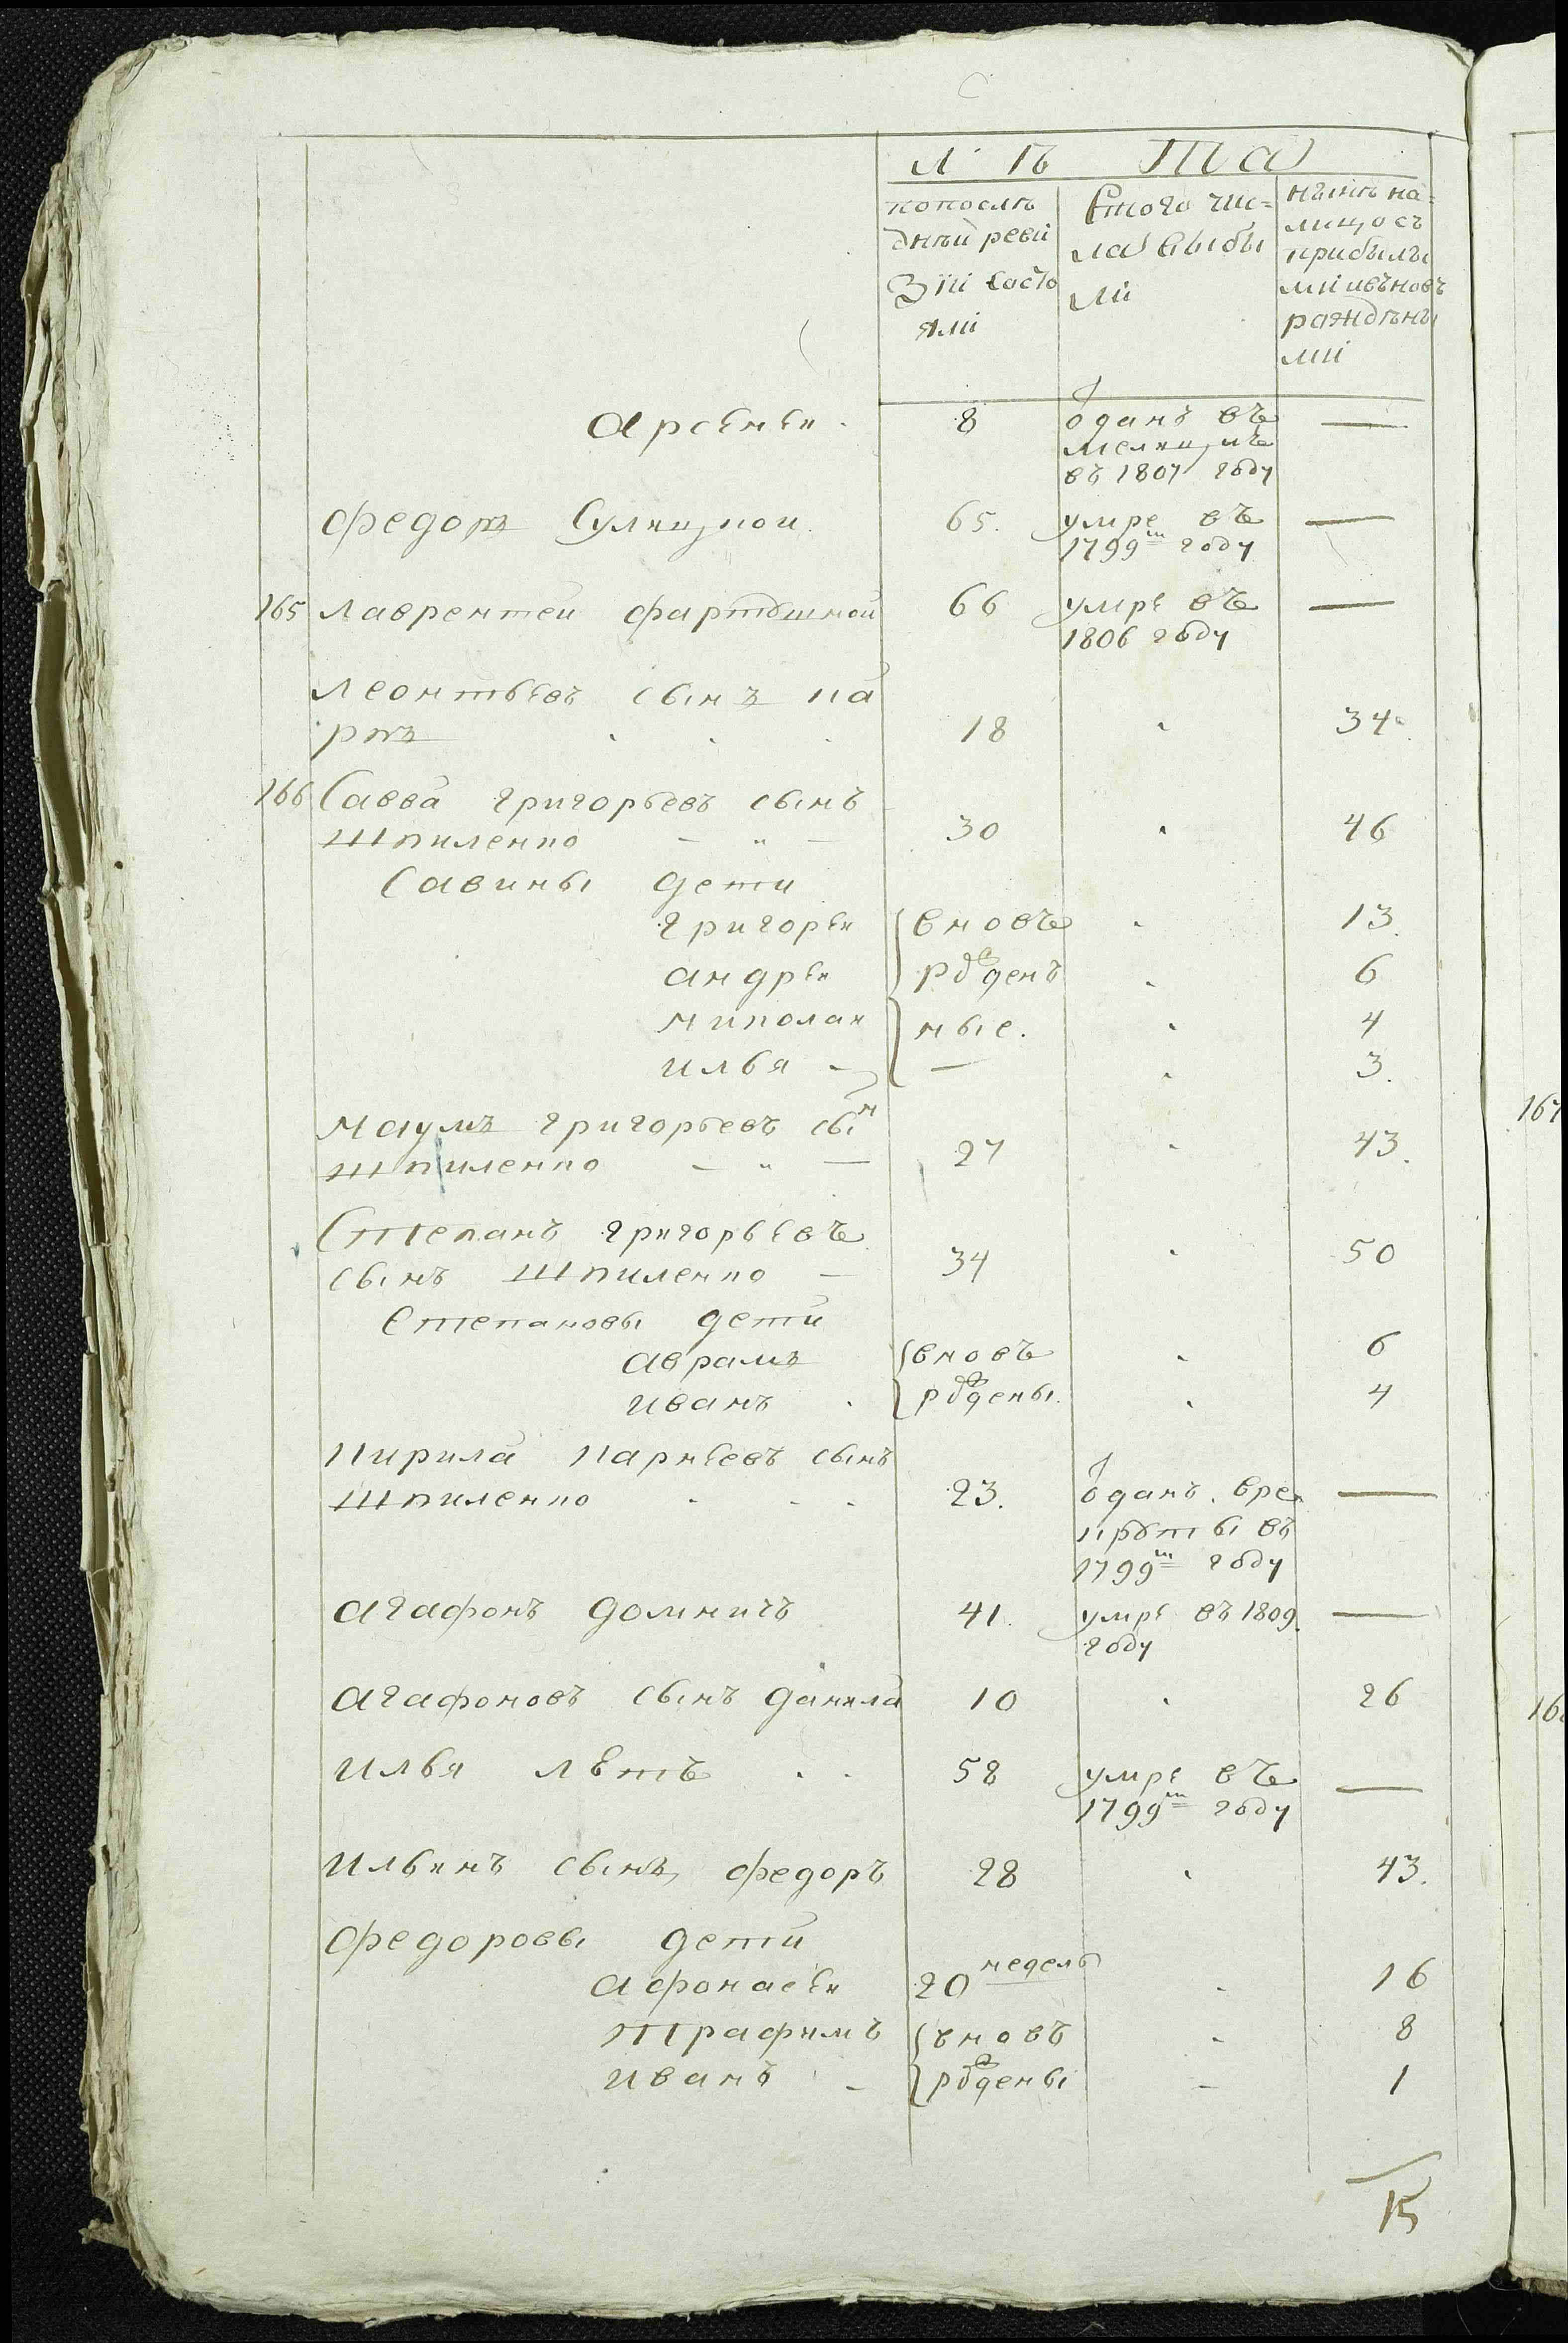 Лѣта
попослѣ
днѣй реви
зіи состо
яли
Стого чис=
ла выбы
ли
нынѣ на=
лицо съ
прибылы
ми ивъновъ
ражденны
ми
Арсеней 8 оданъ въ —
милицию
въ 1807 году
Федоръ Сулицкой 65. умре въ —
1799м году
165 Лаврентей Фартушной 66 умре въ —
1806 году
Леонтьевъ сынъ Ка
рпъ 18 34
166 Савва Григорьевъ сынъ
Шпиленко 30 46
Савины дети
Григорей вновъ 13.
Андрей рожденъ 6
Николай ные. 4
Илья — 3.
Наумъ Григорьевъ сынъ
Шпиленко 27 43.
Степанъ Григорьевъ
сынъ Шпиленко 34 50
Степановы дети
Аврамъ вновъ 6
Иванъ рождены 4
Кирила Карнеевъ сынъ
Шпиленко 23. оданъ вре —
круты въ
1799м году
Агафонъ Домничъ 41. умре въ 1809 —
году
Агафоновъ сынъ Данила 10 26
Илья летъ 58 умре въ —
1799м году
Ильинъ сынъ Федоръ 28 43.
Федоровы дети
Афонасей 20 недель 16
Трафимъ вновъ 8
Иванъ рождены 1
15
167